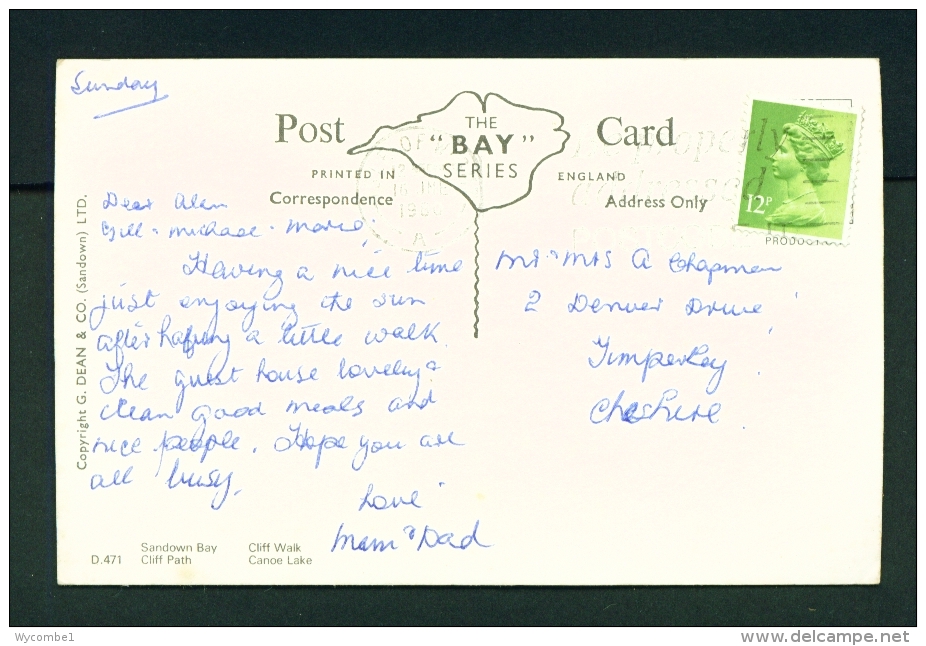 Sunday
Post Card
THE
"BAY"
SERIES
PRINTED IN ENGLAND
Correspondence
Address Only
12P
properly
addressed
1980
A
PRODUCT
Dear Alan
Gill - Michael - Marie,
Having a nice time
just enjoying the sun
after having a little walk.
The guest house lovely &
clean good meals and
nice people. Hope you are
all busy.
Love
Mam & Dad
Mr & Mrs A Chapman
2 Denver Drive
Timperley
Cheshire.
Copyright G. DEAN & CO. (Sandown) LTD.
D.471
Sandown Bay Cliff Walk
Cliff Path Canoe Lake
Wycombe1
www.delcampe.net